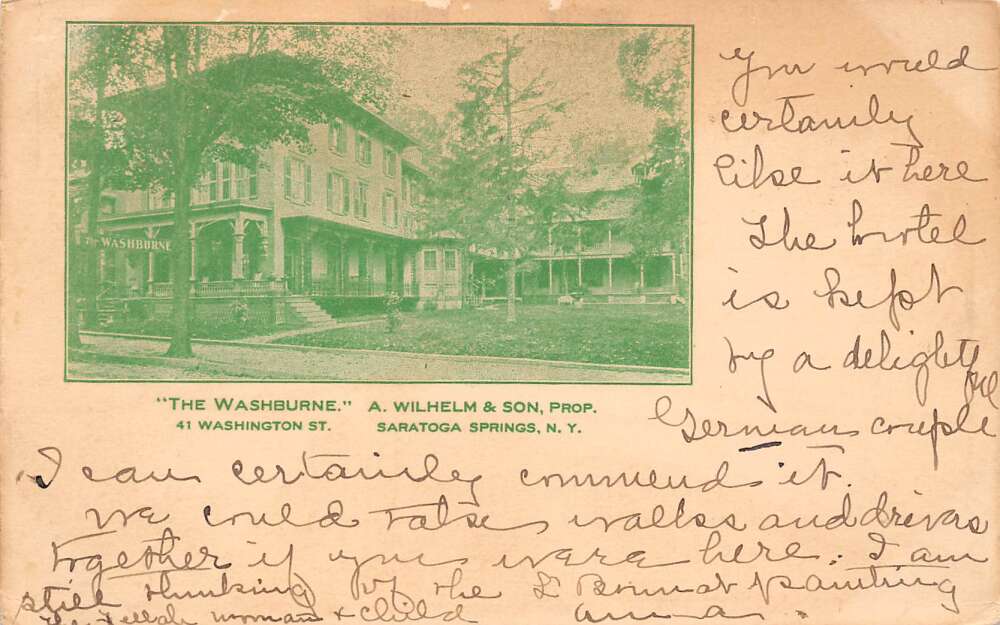 You would
certainly
like it here
The hotel
is kept
by a delightful
German couple
THE WASHBURNE
"THE WASHBURNE." A. WILHELM & SON, PROP.
41 WASHINGTON ST. SARATOGA SPRINGS, N. Y.
I can certainly commend it.
We could take walks and drives
together if you were here. I am
still thinking of the L Bonnat painting
the Fellah woman & child